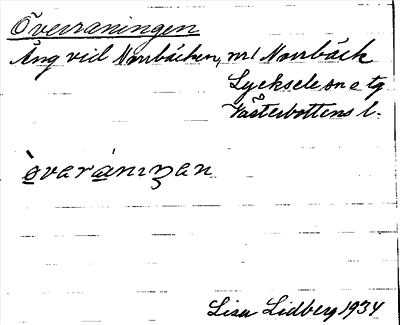 Överraningen
Äng vid Norrbäcken, nr 1 Norrbäck
Lycksele sn o tg
Västerbottens l.
òvaràniŋan
Lisa Lidberg 1934